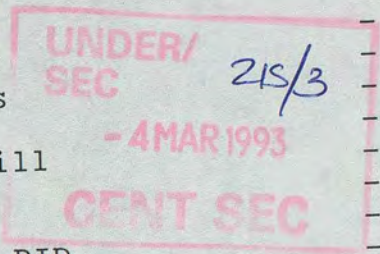 UNDER/
SEC 215/3
s
- 4 MAR 1993
ill
CENT SEC